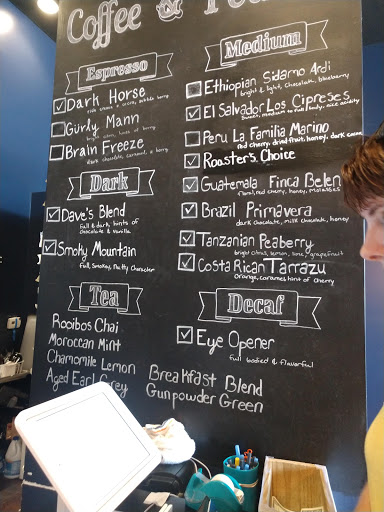 Coffee &
Espresso
Dark Horse
Gurly Mann
Brain Freeze
dark chocolate, caramel, & berry
Dark
Dave's Blend
full & dark, hints of
chocolate & vanilla
Smoky Mountain
full, smoky, nutty character
Tea
Rooibos Chai
Moroccan Mint
Chamomile Lemon
Aged Earl Grey
Breakfast Blend
Gunpowder Green
Medium
Ethiopian Sidamo Ardi
bright & light, chocolate, blueberry
El Salvador Los Cipreses
Sweet, medium to full body, nice acidity
Peru La Familia Marino
red cherry, dried fruit, honey, dark cocoa
Roaster's Choice
Guatemala Finca Belen
floral, red cherry, honey, molasses
Brazil Primavera
dark chocolate, milk chocolate, honey
Tanzanian Peaberry
bright citrus, lemon, lime, grapefruit
Costa Rican Tarrazu
Orange, caramel, hint of cherry
Decaf
Eye Opener
full bodied & flavorful